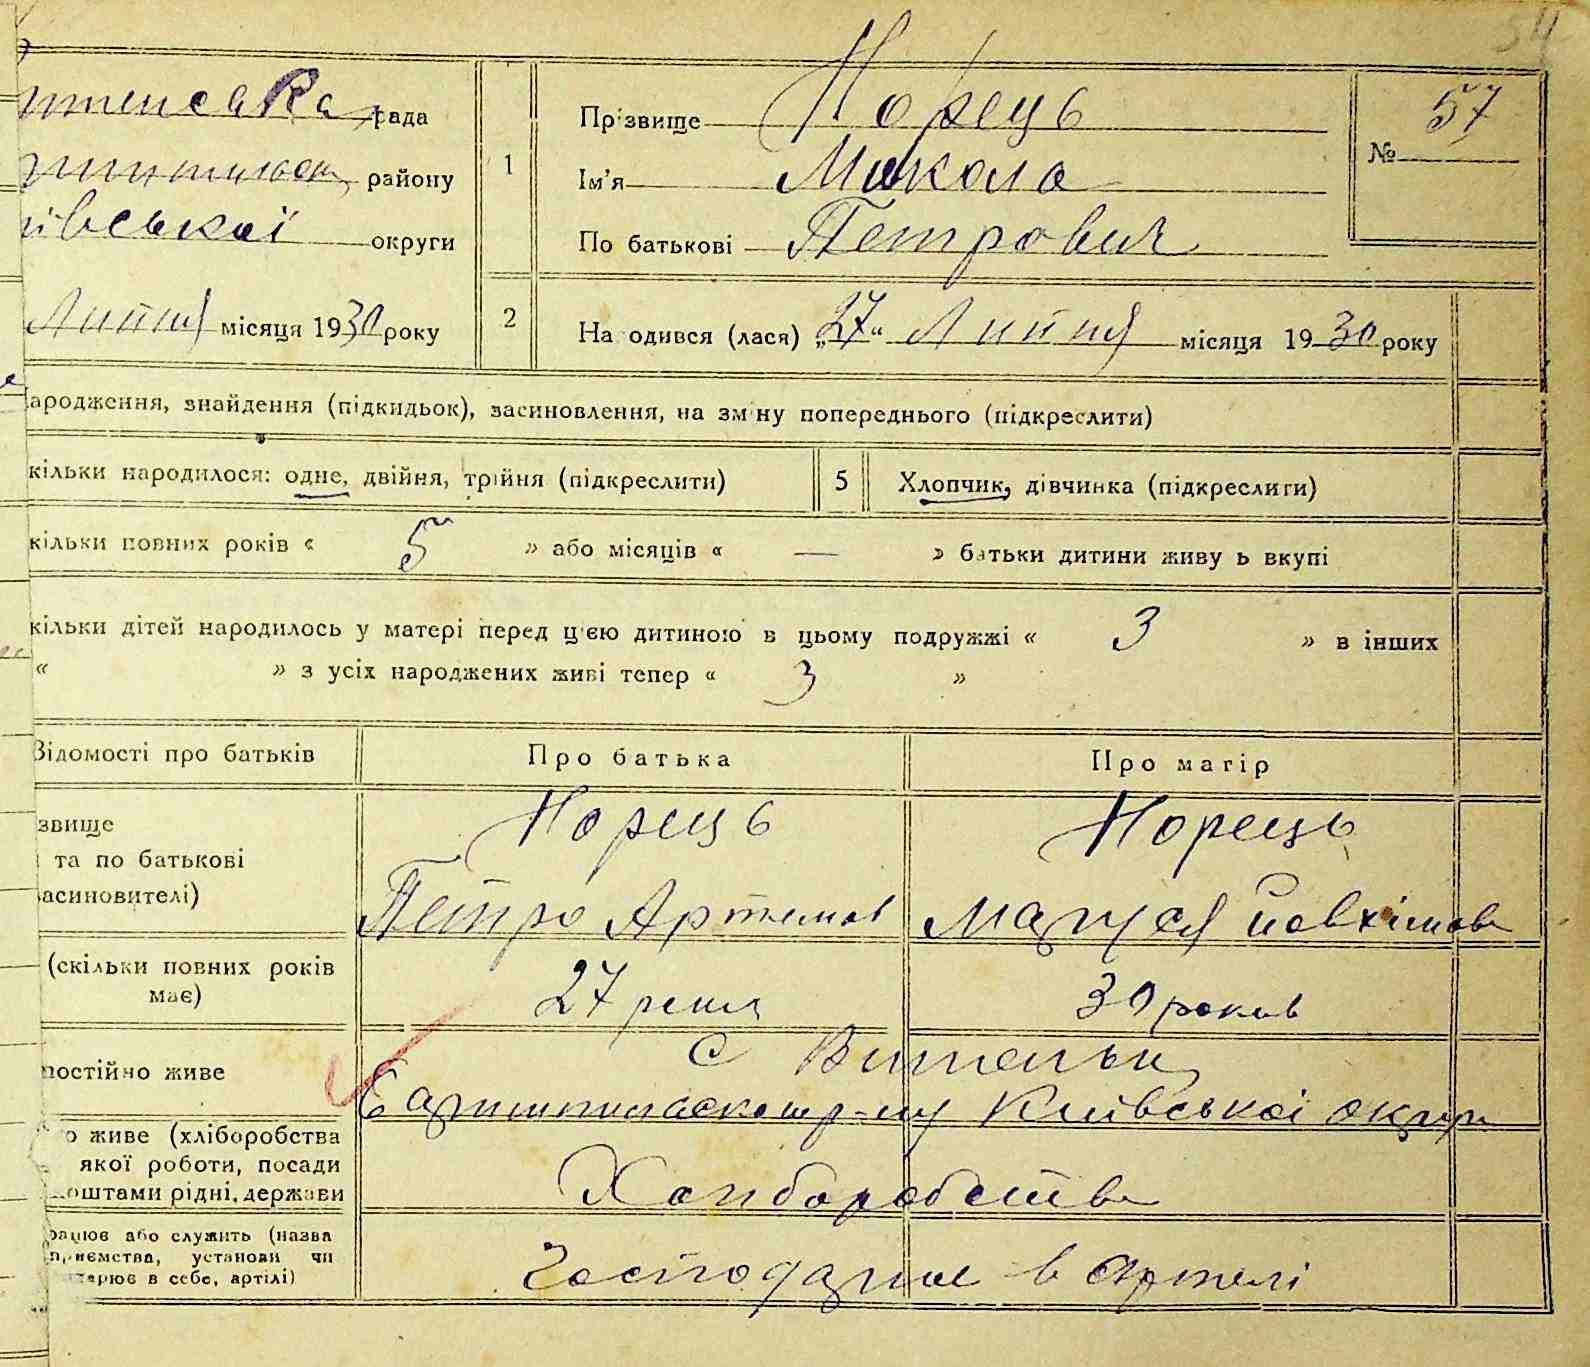 54
рада
району
ївської округи
Липня місяця 1930 року
1
Прізвище Норець
Ім'я Микола
По батькові Петрович
№ 57
2
Народився (лася) „27“ Липня місяця 1930 року
ародження, знайдення (підкидьок), засиновлення, на зміну попереднього (підкреслити)
кільки народилося: одне, двійня, трійня (підкреслити)
5 Хлопчик, дівчинка (підкреслити)
кільки повних років « 5 » або місяців « — » батьки дитини живуть вкупі
кільки дітей народилось у матері перед цією дитиною в цьому подружжі « 3 » в інших
« » з усіх народжених живі тепер « 3 »
Відомості про батьків
Про батька
Про матір
звище
та по батькові
асиновителі)
Норець
Петро Артемов
Норець
Маруся Йовхимов
(скільки повних років
має)
27 рокив
30 роков
постійно живе
с
Київської округи
о живе (хліборобства
якої роботи, посади
коштами рідні, держави
Хлиборобство
рацює або служить (назва
приємства, установи чи
дарює в себе, артілі)
в Артелі